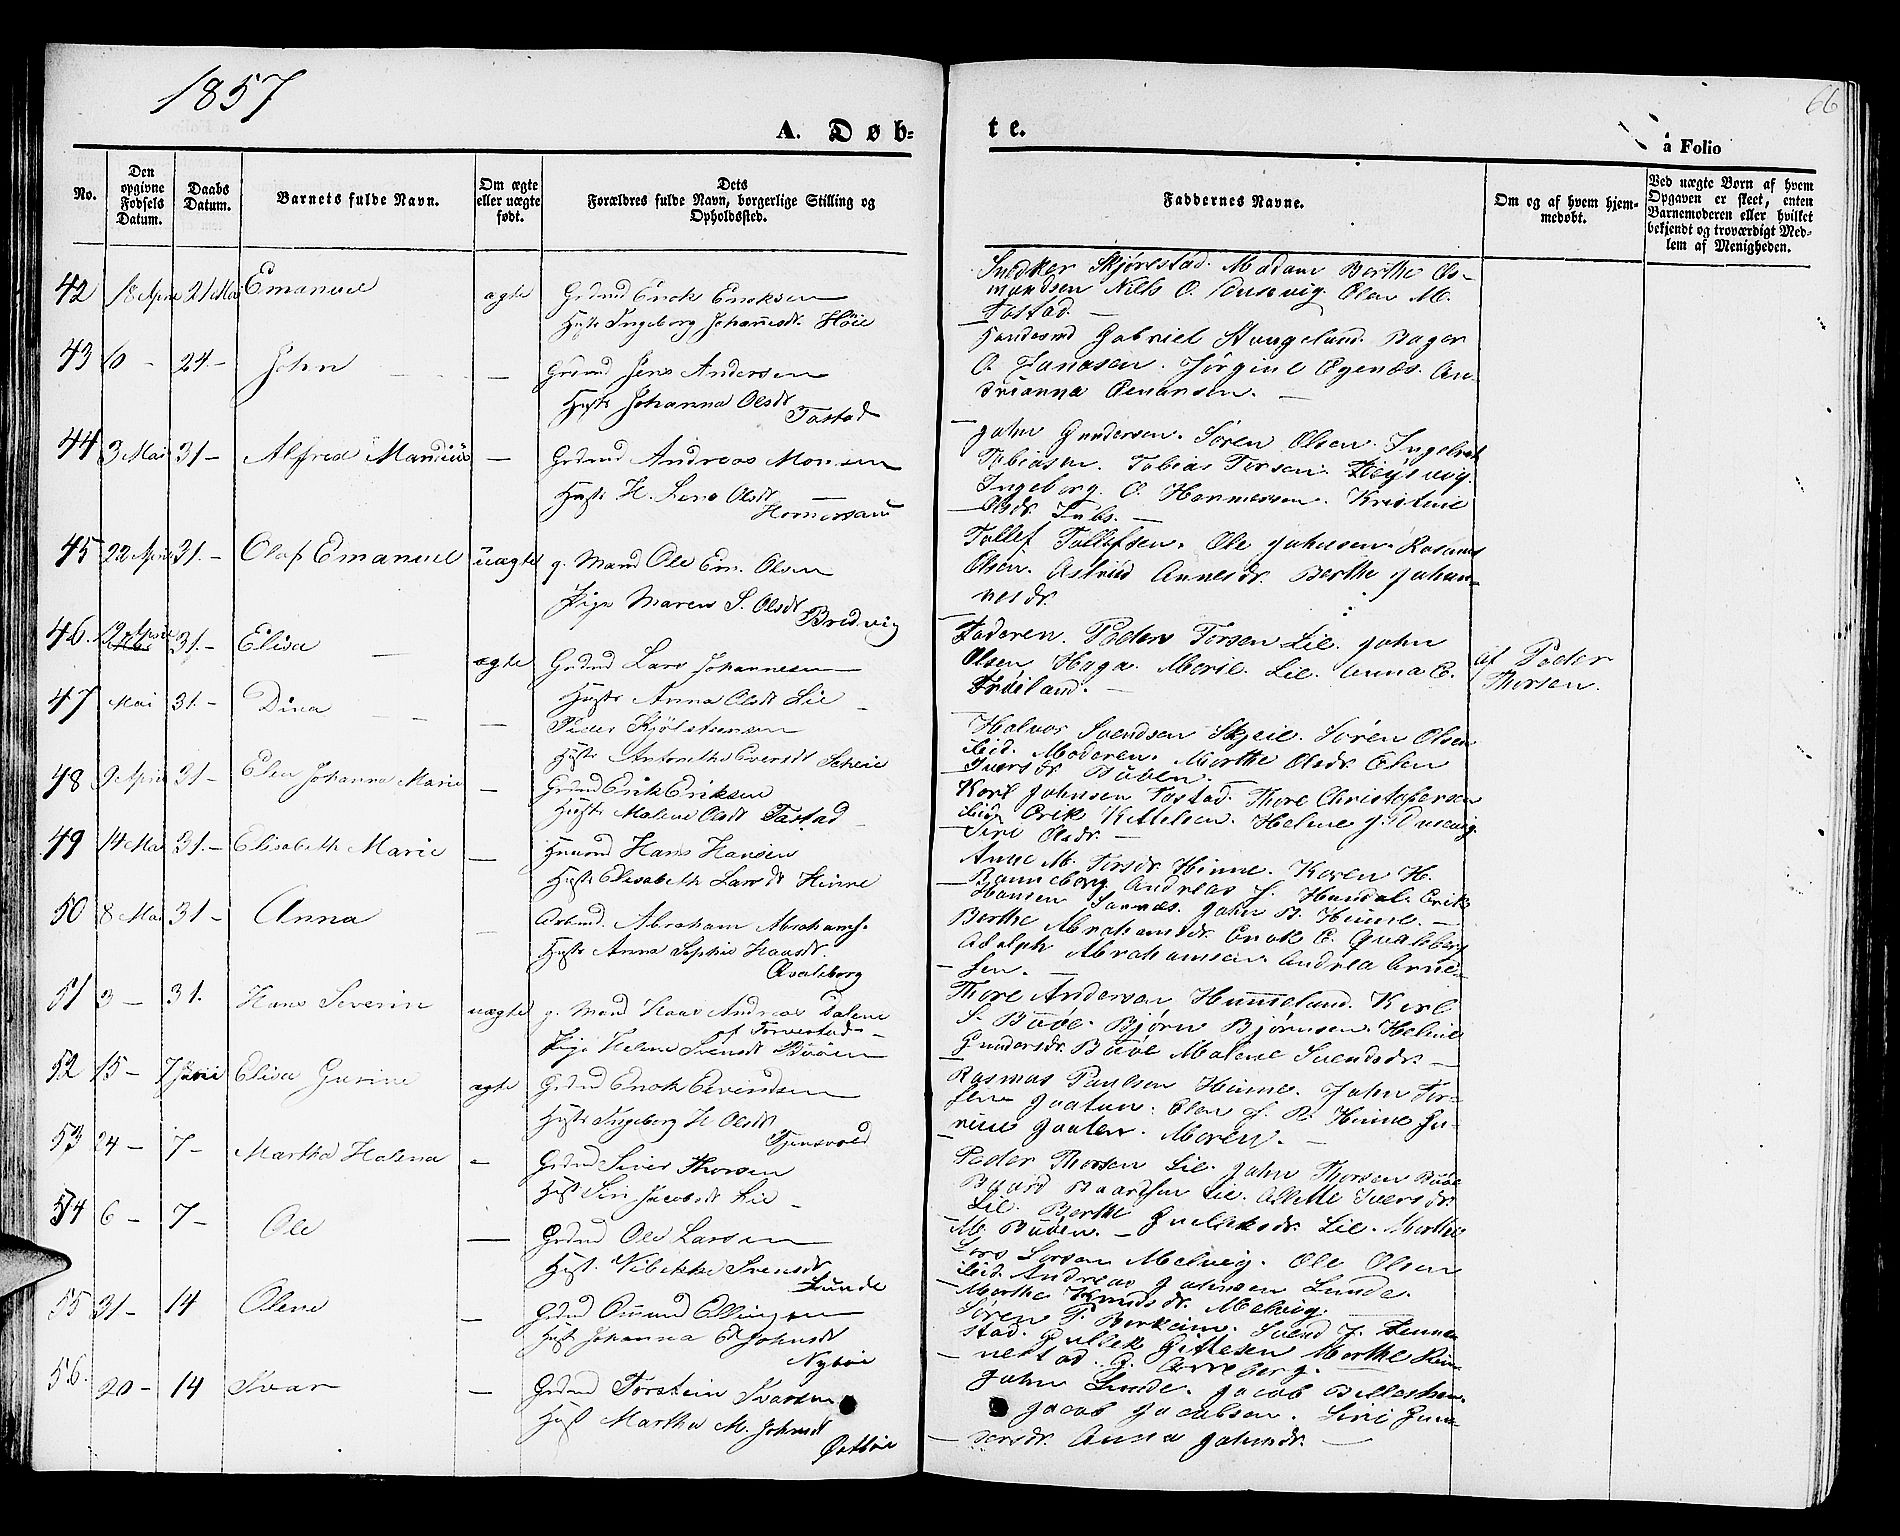 1857
66
A. Døb-
te.
à Folio
No.
Den opgivne Fødsels Datum.
Daabs Datum.
Barnets fulde Navn.
Om ægte eller uægte født.
Dets Forældres fulde Navn, borgerlige Stilling og Opholdssted.
Faddernes Navne.
Om og af hvem hjemmedøbt.
Ved uægte Børn af hvem Opgaven er skeet, enten Barnemoderen eller hvilket bekjendt og troværdigt Medlem af Menigheden.
42 18 April 21 Mai Emanuel ægte Grdmd Enok Enoksen
Hustr Ingeborg Johannesdr Høie
Snedker Skjørestad. Madam Berthe As-
mundsen Nils O. Dusevig Elen M.
Tastad. —
43 10 - 24 - John — Grdmd Jens Andersen
Hustr Johanna Olsdr
Tastad
Gabriel Stangeland. Bager
O. Jonasen. Jørgine Egenæs. An-
drianna
44 3 Mai 31 - Alfred — Grdmd Andreas Monsen
Hustr H. Lena Olsdr
John Gundersen. Søren Olsen. Ingebret
Tobiasen. Tobias Torsen.
Ingeborg O. Kristine
Olsdr
45 22 April 31. - Olaf Emanuel uægte g. Mand Ole Em. Olsen
Pige Maren S. Olsdr
Bredvig
Tollef Tollefsen. Ole Johnsen. Rasmus
Olsen. Astried Annesdr. Berthe Johan-
nesdr.
46. 19 April 31. - Elisa ægte Grdmd Lars Johannesen
Hustr Anna Olsdr Lie
Faderen. Peder Torsen Lie. John
Olsen Haga. Marie Lie. Anna E.
Frøiland. —
af Peder
Thorsen.
47 Mai 31. - Dina — Peder
Hustr Iversdr Scheie
Halvor Svendsen Skjeie. Søren Olsen
ibid. Moderen. Marthe Olsdr. Elen
Iversdr Buøen.
48 9 April 31 - Elen Johanna Marie — Grdmd Erik Eriksen
Hustr Malene Olsdr Tastad
Karl Johnsen Tastad. Thore Christofersen
ibid Erik Kittelsen. Helene J. Dusevig.
Siri Olsdr. —
49 14 Mai 31. - Elisabeth Marie — Huusmd Hans Hansen
Hustr Elisabeth Larsdr Hinne
Anne M. Torsdr Hinne. Karen H.
Andreas J. Hundal. Erik
Hansen Sannæs. John B. Hinne. —
50 8 Mai 31 - Anna — Abraham Abrahams.
Hustr Anna Sophie Haasdr.
Qvaleberg
Berthe Abrahamsdr. Enok E. Qvaleberg
Adolph Abrahamsen. Andrea Arne-
sen. —
51 3 — 31. Hans Severin uægte g. Mand Haas Andreas Dalene
af Torvestad
Pige Helene Svensdr Buøen
Thore Andersen Hummeland. Karl
S. Buøe. Bjørn Bjørnsen. Helene
Gundersdr. Buøe Malene Svendsdr. —
52 15 - 7 Juni Elisa Gurine ægte Grdmd Enok Eivindsen
Hustr Ingeborg H Olsdr
Tjensvold
Rasmus Paulsen Hinne. John Tor-
sen Jaatun. Elen S. R. Hinne Gu-
rine Jaaten. Maren. —
53 24 - 7 - Martha Helena - Grdmd Siver Thorsen
Hust Siri Jacobsdr Lie
Peder Thorsen Lie. John Thorsen Buøe
Baard Baardsen Lie. Allette Iversdr
Lie. Berthe Gulliksdr. Lie. Marthe
M. Buøen. —
54 6 - 7 - Ole — Grdmd Ole Larsen
Hust. Vibekke Svensdr
Lunde
Lars Larsen Melvig. Ole Olsen
ibid. Andreas Johnsen Lunde.
Marthe Knudsdr. Melvig.
55 31 - 14 Olene — Grdmd Omund Ellingsen
Hust Johanna Johnsdr
Nybøe
Søren P. Berkeim. Svend J.
stad. Gullek Gittesen Marthe
56. 20 - 14 Svar — Grdmd Torstein Svarsen
Hust Martha M. Johnsdr
John Lunde. Jacob
Jacob Jacobsen. Sirie Gun-
dersdr. Anna Johnsdr. —